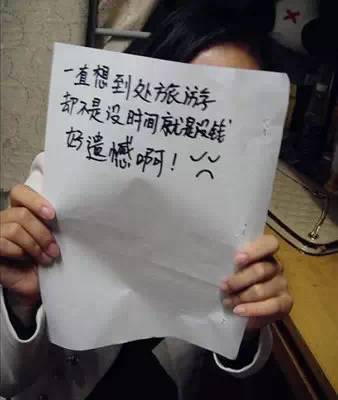 一直想到处旅游
却不是没时间就是没钱
好遗憾啊！